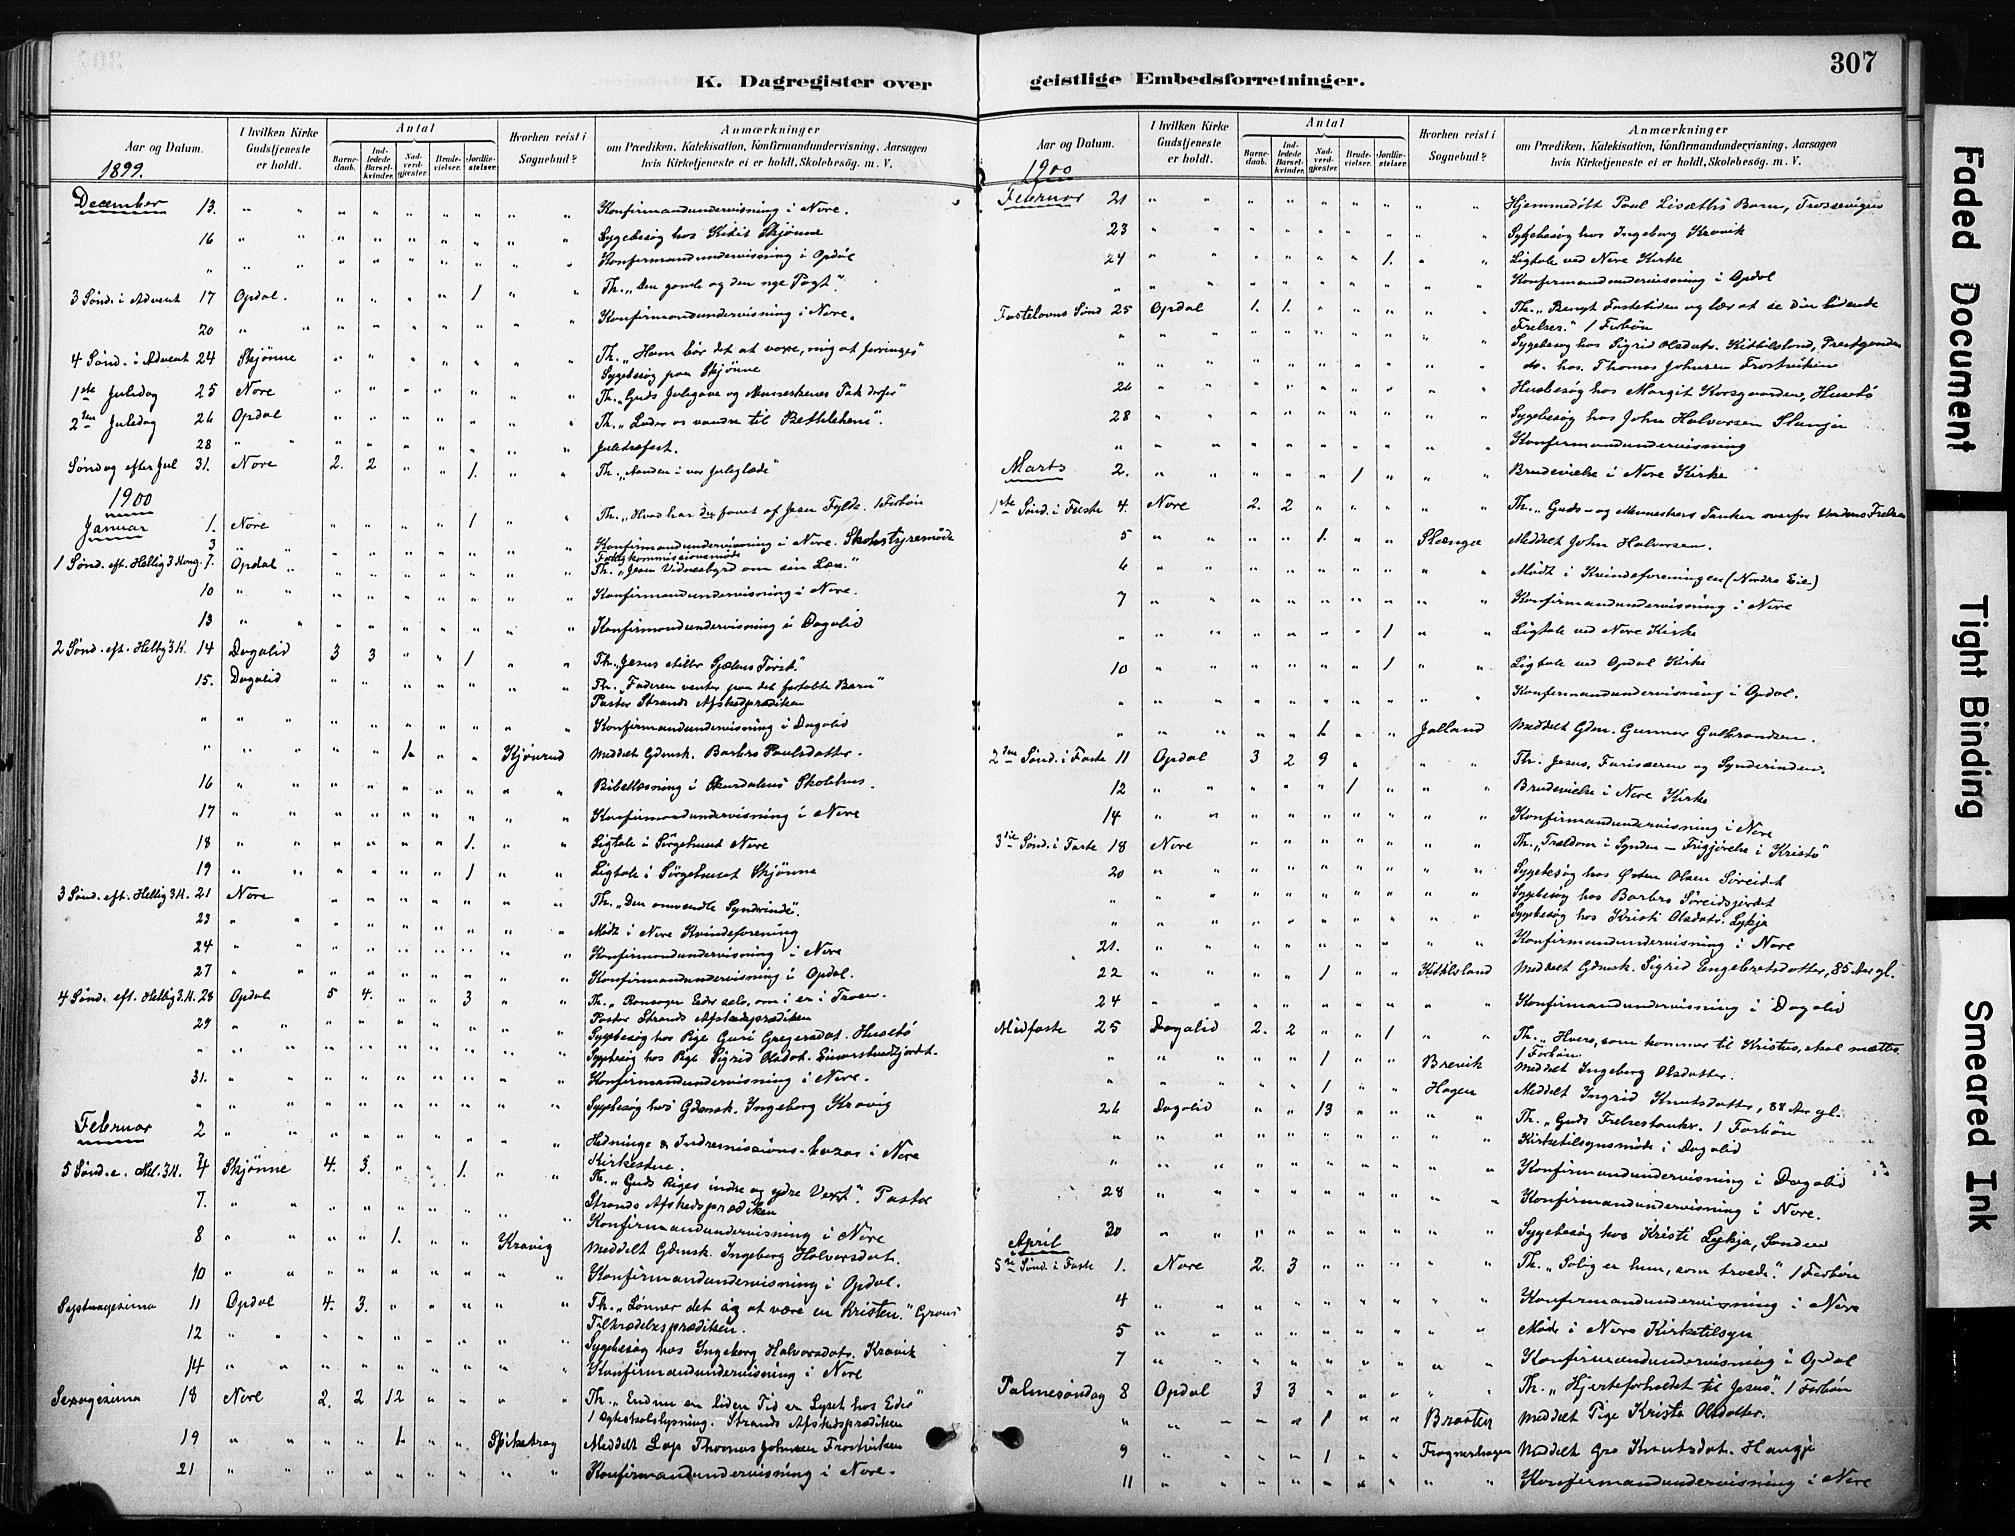 307
K. Dagregister over
geistlige Embedsforretninger.
Aar og Datum.
I hvilken Kirke Gudstjeneste er holdt.
Antal
Barnedaab.
Indledede Barselkvinder.
Nadverdgjester.
Brudevielser.
Jordfæstelser.
Hvorhen reist i Sognebud?
Anmærkninger
om Prædiken, Katekisation, Konfirmandundervisning, Aarsagen
hvis Kirketjeneste ei er holdt, Skolebesøg m. V.
1899.
December 13. " " " " " " " " " Konfirmandundervisning i Nore.
16 " " " " " " " " " Sygebesøg hos Kittil Skjønne
" " " " " " " " " " Konfirmandundervisning i Opdal
3 Sønd. i Advent 17 Opdal. " " " " 1 " " Th. „Den gamle og den nye Pagt".
20 " " " " " " " " " Konfirmandundervisning i Nore.
4 Sønd. i Advent 24 Skjønne " " " " " " " Th. „Ham bør det at voxe, mig at forringes"
Sygebesøg paa Skjønne
1ste Juledag 25 Nore " " " " " " " Th. „Guds Julegave og Menneskenes Takoffer"
2den Juledag 26 Opdal " " " " " " " Th. „Lader os vandre til Bethlehem".
28 " " " " " " " " " Juletræfest.
Søndag efter Jul 31. Nore 2. 2 " " 1. " " Th. „Aanden i vor Juleglæde"
1900
Januar 1. Nore " " " " 1 " " Th. „Hvad har du faaet af Jesu Fylde. 1 Forbøn
3 " " " " " " " " " Konfirmandundervisning i Nore. Skolestyremøde
Fattigkommissionsmøde
1 Sønd. eft. Hellig 3 Kong. 7. Opdal " " " " " " " " Th. „Jesu Vidnesbyrd om sin Lære."
10 " " " " " " " " " Konfirmandundervisning i Nore.
13 " " " " " " " " " Konfirmandundervisning i Dagalid
2 Sønd. eft. Hellig 3 K. 14 Dagalid 3 3 " " 1 " " Th. „Jesus stiller Sjælens Tørst."
15. Dagalid " " " " " " " Th. „Faderen venter paa det fortabte Barn"
Pastor Strands Afskedsprædiken
" " " " " " " " " " Konfirmandundervisning i Dagalid
" " " " " 1. " " Kjønrud Meddelt Gdmsk. Barbro Paulsdatter.
16 " " " " " " " " " Bibellæsning i Skurdalens Skolehus.
17 " " " " " " " " " Konfirmandundervisning i Nore
18 " " " " " " 1. " " Ligtale i Sørgehuset Nore
19 " " " " " " 1 " " Ligtale i Sørgehuset Skjønne
3 Sønd. eft. Hellig 3 K. 21 Nore " " " " " " " Th. „Den omvendte Synderinde".
23 " " " " " " " " " Møde i Nore Kvindeforening
24 " " " " " " " " " Konfirmandundervisning i Nore
27 " " " " " " " " " Konfirmandundervisning i Opdal.
4 Sønd. eft. Hellig 3 K. 28 Opdal 5 4. " " 3 " " Th. „Ransager Eder selv, om i er i Troen.
Pastor Strands Afskedsprædiken
29 " " " " " " " " " Sygebesøg hos Pige Guri Gregersdat. Husetø
" " " " " " " " " " Sygebesøg hos Pige Sigrid Olsdat.
31. " " " " " " " " " Konfirmandundervisning i Nore.
" " " " " " " " " " Sygebesøg hos Gdmsk. Ingeborg Kravig
Februar 2 " " " " " " " " " Hedninge & Indremissions-bazar i Nore
Kirkestue.
5 Sønd. e. Hel. 3 K. 4 Skjønne 4. 3. " " 1. " " Th. „Guds Riges indre og ydre Vext". Pastor
Strands Afskedsprædiken
7. " " " " " " " " " Konfirmandundervisning i Nore
8 " " " " 1. " " Kravig Meddelt Gdmsk. Ingeborg Halvorsdat.
10 " " " " " " " " " Konfirmandundervisning i Opdal.
Septuagesima 11 Opdal 4. 3. " " " " " Th. „Lønner det sig at være en Kristen."
Tiltrædelsesprædiken.
12 " " " " " " " " " Sygebesøg hos Ingeborg Halvorsdatr. Kravik
14 " " " " " " " " " Konfirmandundervisning i Nore
Sexagesima 18 Nore 2. 2 12 " " " " Th. „Endnu en liden Tid er Lyset hos Eder"
1 Strands Afskedsprædiken
19 " " " " 1. " " Meddelt Lap Thomas Johnsen Frostviken
21 " " " " " " " " " Konfirmandundervisning i Nore.
Aar og Datum.
I hvilken Kirke Gudstjeneste er holdt.
Antal
Barnedaab.
Indledede Barselkvinder.
Nadverdgjester.
Brudevielser.
Jordfæstelser.
Hvorhen reist i Sognebud?
Anmærkninger
om Prædiken, Katekisation, Konfirmandundervisning, Aarsagen
hvis Kirketjeneste ei er holdt, Skolebesøg m. V.
1900
Februar 21 " " " " " " " " " Hjemmedøbt Paul Lisæths Barn,
23 " " " " " " " " " Sygebesøg hos Ingeborg Kravik
24 " " " " " " 1. " " Ligtale ved Nore Kirke
" " " " " " " " " " Konfirmandundervisning i Opdal
Fastelavns Sønd 25 Opdal 1. 1. " " " " " Th. „Benyt Fastetiden og lær at se din lidende
Frelser." 1 Forbøn
" " " " " " " " " " Sygebesøg hos Sigrid Olsdatr. Kittilsland,
" " " " " " " " " do. hos. Thomas Johnsen Frostviken
26 " " " " " " " " " Husbesøg hos Margit Korsgaarden, Husetø
28 " " " " " " " " " Sygebesøg hos John Halvorsen Slænga
" " " " " " " " " " Konfirmandundervisning
Marts 2. " " " " " 1 " " " Brudevielse i Nore Kirke
1ste Sønd. i Faste 4. Nore 2. 2 " " " " " Th. „Guds- og Menneskers Tanker overfor Verdens Frelser
5 " " " " 1. " " Slænga Meddelt John Halvorsen.
6 " " " " " " " " " Mødt i Kvindeforeningen (Nordre Eie)
7 " " " " " " " " " Konfirmandundervisning i Nore
" " " " " " " 1 " " Ligtale ved Nore Kirke
10 " " " " " " 1 " " Ligtale ved Opdal Kirke
" " " " " " " " " " Konfirmandundervisning i Opdal.
" " " " " 1 " " Jalland Meddelt Gdm. Gunnar Gulbrandsen.
2den Sønd. i Faste 11 Opdal 3 2 9 " " " " Th. Jesus, Farisæeren og Synderinden.
12 " " " " " 1 " " " Brudevielse i Nore Kirke
14 " " " " " " " " " Konfirmandundervisning i Nore
3die Sønd. i Faste 18 Nore " " " " " " " Th. „Trældom i Synden – Frigjørelse i Kristo"
20 " " " " " " " " " Sygebesøg hos Østen Olsen Søreidet
" " " " " " " " " " Sygebesøg hos Barbro Søreidsjordet
" " " " " " " " " " Sygebesøg hos Kristi Olsdatr. Lykja
21. " " " " " " " " " Konfirmandundervisning i Nore
22 " " " " 1 " " Kittilsland Meddelt Gdmsk. Sigrid Engebretsdatter, 85 Aar gl.
24 " " " " " " " " " Konfirmandundervisning i Dagalid
Midfaste 25 Dagalid 2. 2 " " 1 " " Th. „Hver, som kommer til Kristus, skal mættes
1 Forbøn
" " " " " 1 " " Brevik Meddelt Ingeborg Olsdatter.
" " " " " 1 " " Hagen Meddelt Ingrid Knutsdatter, 88 Aar gl.
26 Dagalid " " 13 " " " " Th. „Guds Frelsestanker. 1 Forbøn
" " " " " " " " " " Kirketilsynsmøde i Dagalid
" " " " " " " " " " Konfirmandundervisning i Dagalid
28 " " " " " " " " " Konfirmandundervisning i Nore.
30 " " " " " " " " " Sygebesøg hos Kristi Lykja,
April
5te Sønd. i Faste 1. Nore 2. 3 " " " " " Th. „Salig er hun, som troede." 1 Forbøn
4 " " " " " " " " " Konfirmandundervisning i Nore
5 " " " " " " " " " Møde i Nore Kirketilsyn
7 " " " " " " " " " Konfirmandundervisning i Opdal
Palmesøndag 8 Opdal 3 3 " " " " " Th. „Hjerteforholdet til Jesus". 1 Forbøn
" " " " " 1 " " Braaten Meddelt Pige Kristi Olsdatter.
9 " " " " 1 " " Frognerhagen Meddelt Gro Knutsdat. Haugje
11 " " " " " " " " " Konfirmandundervisning i Nore
Faded Document
Tight Binding
Smeared Ink